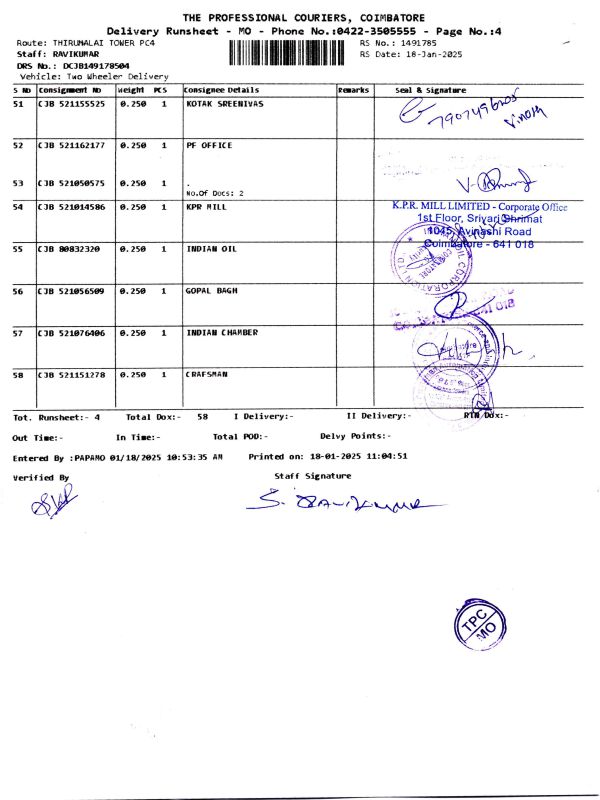 THE PROFESSIONAL COURIERS, COIMBATORE
Delivery Runsheet - MO - Phone No.:0422-3505555 - Page No.:4
Route: THIRUMALAI TOWER PC4
RS No.: 1491785
Staff: RAVIKUMAR
RS Date: 18-Jan-2025
DRS No.: DCJB149178504
Vehicle: Two Wheeler Delivery
S No Consignment No Weight PCS Consignee Details Remarks Seal & Signature
51 CJB 521155525 0.250 1 KOTAK SREENIVAS
Vinoth
52 CJB 521162177 0.250 1 PF OFFICE
53 CJB 521050575 0.250 1 .
No.Of Docs: 2
54 CJB 521014586 0.250 1 KPR MILL
K.P.R. MILL LIMITED - Corporate Office
1st Floor, Srivari Shrimat
1045, Avinashi Road
Coimbatore - 641 018
55 CJB 80832320 0.250 1 INDIAN OIL
56 CJB 521056509 0.250 1 GOPAL BAGH
57 CJB 521076406 0.250 1 INDIAN CHAMBER
58 CJB 521151278 0.250 1 CRAFSMAN
Tot. Runsheet:- 4 Total Dox:- 58 I Delivery:- II Delivery:- RTN Dox:-
Out Time:- In Time:- Total POD:- Delvy Points:-
Entered By :PAPAMO 01/18/2025 10:53:35 AM Printed on: 18-01-2025 11:04:51
Verified By
Staff Signature
S. Ravikumar
TPC
MO